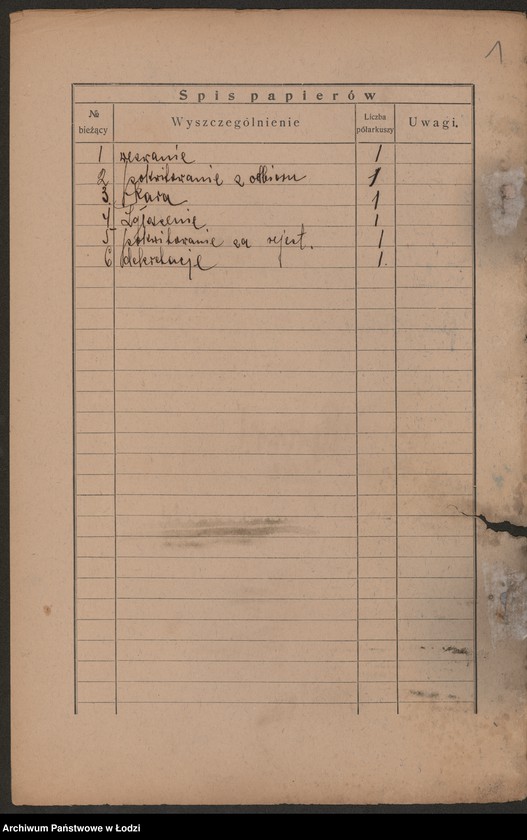 1
Spis papierów
№ bieżący
Wyszczególnienie
Liczba półarkuszy
Uwagi.
1 wezwanie 1
2 pokwitowanie z odbioru 1
3 kara 1
4 Zgłoszenie 1
5 pokwitowanie za rejest. 1
6 deklaracje 1.
Archiwum Państwowe w Łodzi